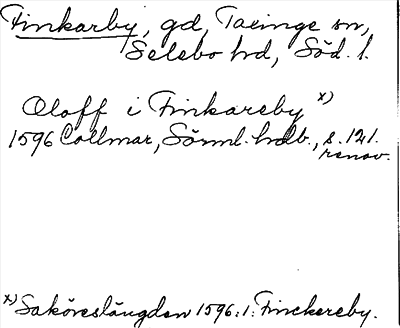 Finkarby, gd, Taxinge sn,
Selebo hd, Söd. l.
Oloff i Finkareby x)
1596 Collmar, Sörml. hdlb., s. 121.
renov.
x) Saköreslängden 1596:1: Finckereby.